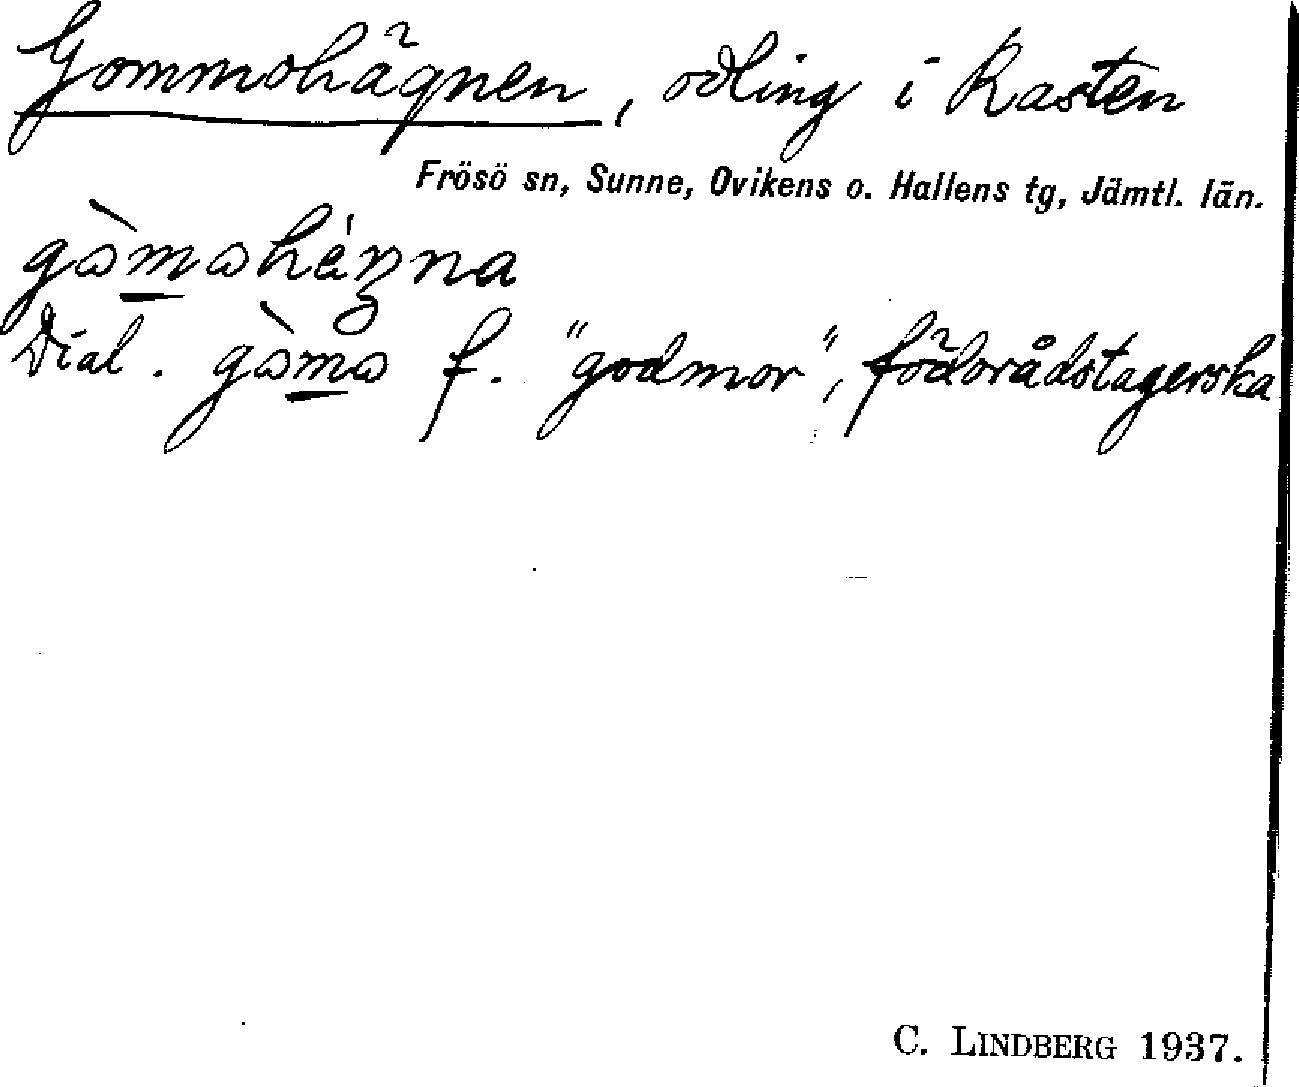 Gommohägnen, odling i Rasten
Frösö sn, Sunne, Ovikens o. Hallens tg, Jämtl. län.
Dial. f. "godmor", födorådstagerska
C. LINDBERG 1937.